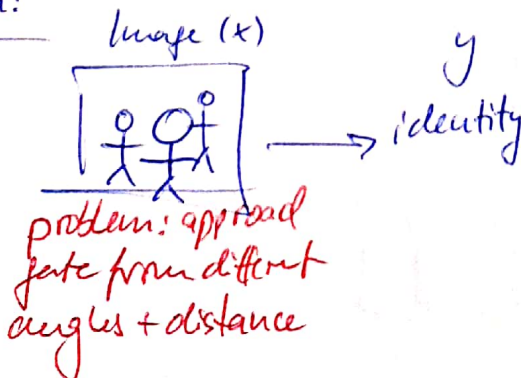 Image (x)
y
identity
problem: approach
gate from different
angles + distance